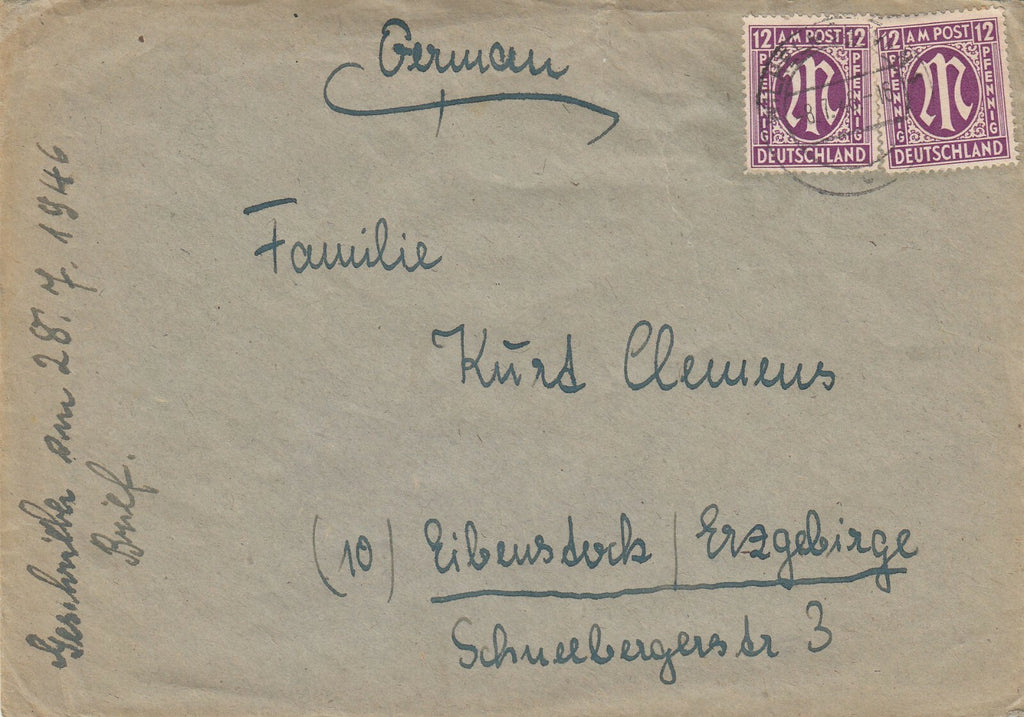 German
12 AM POST 12
PFENNIG PFENNIG
M
DEUTSCHLAND
12 AM POST 12
PFENNIG PFENNIG
M
DEUTSCHLAND
Familie
Kurt Clemens
(10) Eibenstock / Erzgebirge
Schneebergerstr 3
Geschrieben am 28.7.1946
Brief.